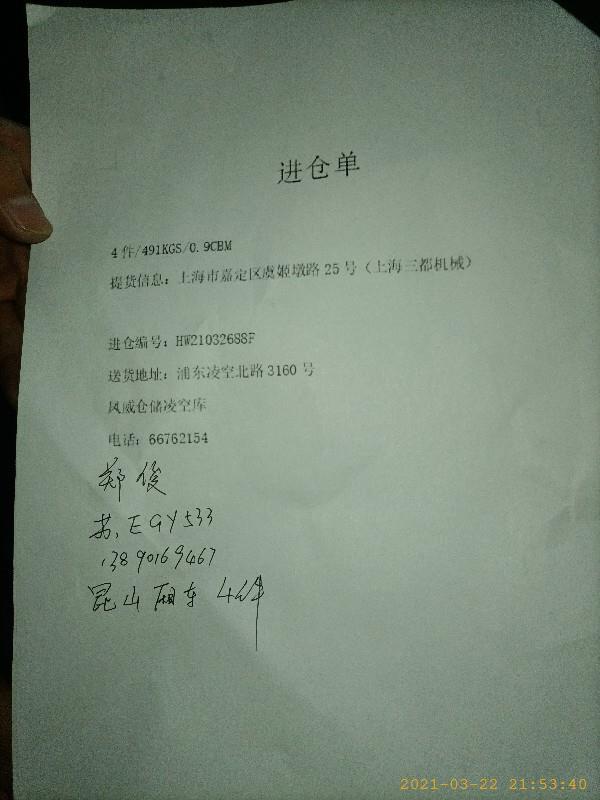 进仓单
4件/491KGS/0.9CBM
提货信息：上海市嘉定区虞姬墩路25号（上海三都机械）
进仓编号：HW21032688F
送货地址：浦东凌空北路3160号
风威仓储凌空库
电话：66762154
郑俊
苏.EGY533
13890169467
昆山厢车 4件
2021-03-22 21:53:40